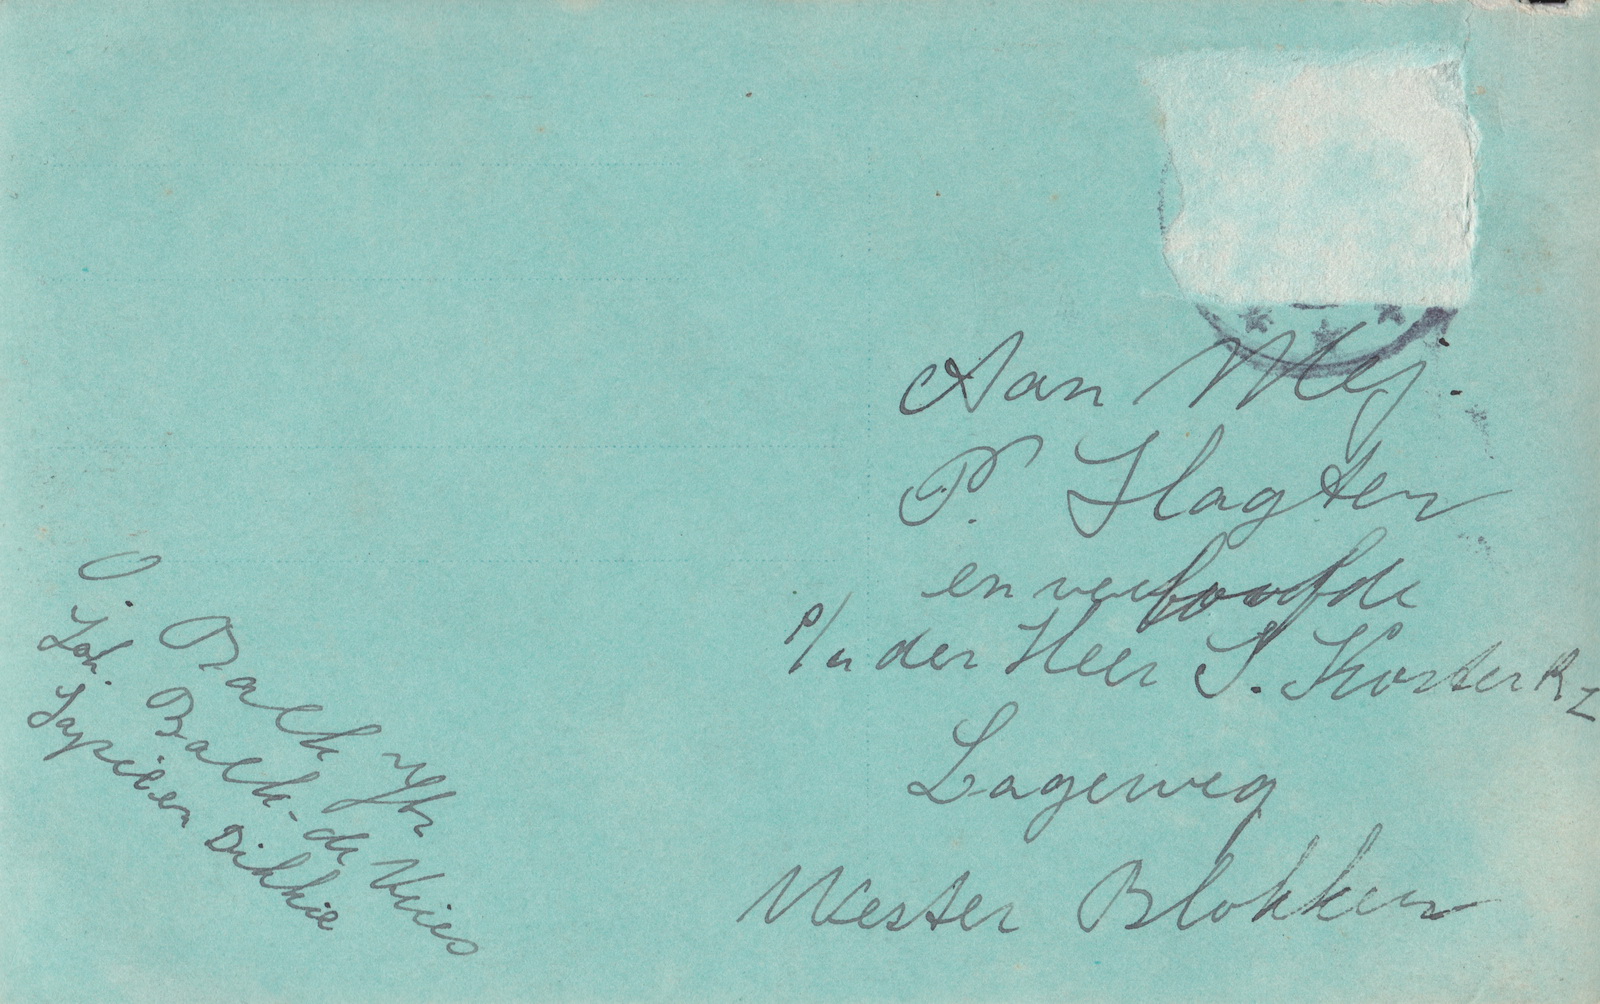 Aan Mej.
P. Slagter
en verloofde
p/a den Heer S. Koster Rz
Lageweg
Wester Blokker
Joh. Balk-de Vries
en Dikkie